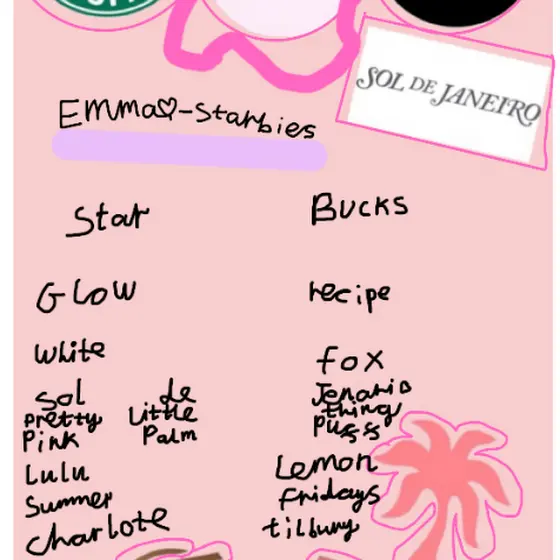 SOL DE JANEIRO
Emma♡-Starbies
Star Bucks
Glow recipe
White fox
Sol de Jenario
Pretty Little thing
Pink Palm puffs
Lulu Lemon
Summer Fridays
Charlote tilbury